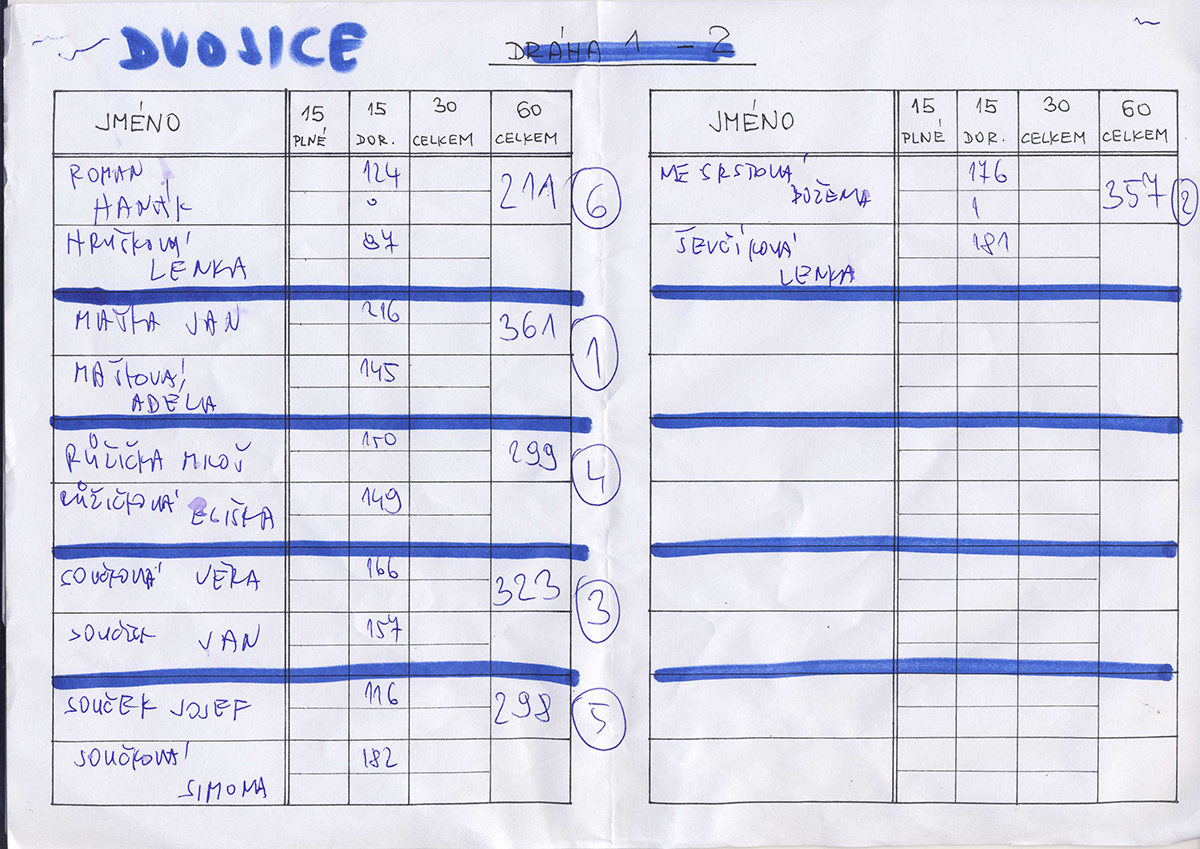 DVOJICE
DRÁHA 1 - 2
JMÉNO 15 PLNÉ 15 DOR. 30 CELKEM 60 CELKEM
ROMAN 124 211 6
HANÁK 0
HRUŠKOVÁ 87
LENKA
MAŤKA JAN 216 361 1
MAŤKOVÁ 145
ADÉLA
RŮŽIČKA MILOŠ 150 299 4
RŮŽIČKOVÁ ELIŠKA 149
SOUČKOVÁ VĚRA 166 323 3
SOUČEK JAN 157
SOUČEK JOSEF 116 298 5
SOUČKOVÁ 182
SIMONA
JMÉNO 15 PLNÉ 15 DOR. 30 CELKEM 60 CELKEM
176 357 2
BOŽENA 1
ŠEVČÍKOVÁ 181
LENKA